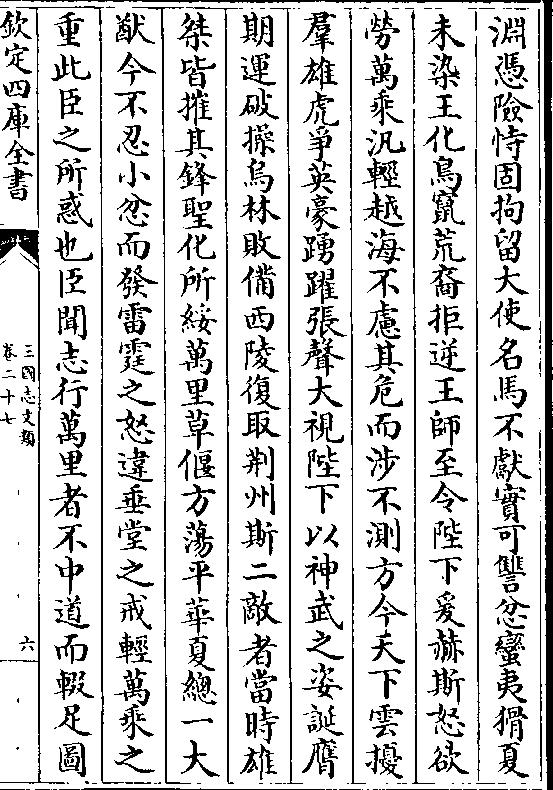 淵憑險恃固拘留大使名馬不獻實可讐忿蠻夷猾夏
未染王化鳥竄荒裔拒逆王師至令陛下爰赫斯怒欲
勞萬乘汎輕越海不慮其危而涉不測方今天下雲擾
羣雄虎爭英豪踴躍張聲大視陛下以神武之姿誕膺
期運破操烏林敗備西陵復取荆州斯二敵者當時雄
桀皆摧其鋒聖化所綏萬里草偃方蕩平華夏總一大
猷今不忍小忿而發雷霆之怒違垂堂之戒輕萬乘之
重此臣之所惑也臣聞志行萬里者不中道而輟足圖
欽定四庫全書
三國志文類
卷二十七
六